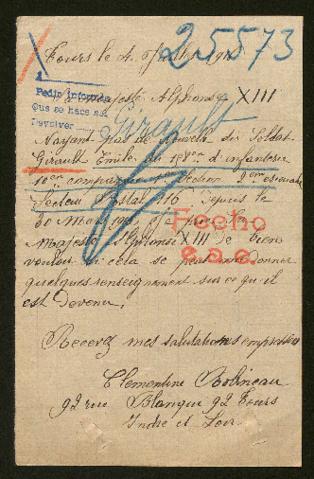 Tours le 4 Juillet
25573
Pedir informes
Que se hace
Devolver
Majesté Alphonse XIII
Girault
Nayant pas de Nouvelle du Soldat
Girault Emile du d'infanterie
10em compagnie section 9em escouade
Secteur Postal 116 Depuis le
30 Mai je prie Sa
Fecho
Majesté Alphonse XIII de bien
e.a.c.
vouloir si cela se peut me donner
quelques renseignement sur ce qu-il
est Devenu.
Recevez mes salutations empressées
Clementine
92 rue Blanqui 92 Tours
Indre et Loire